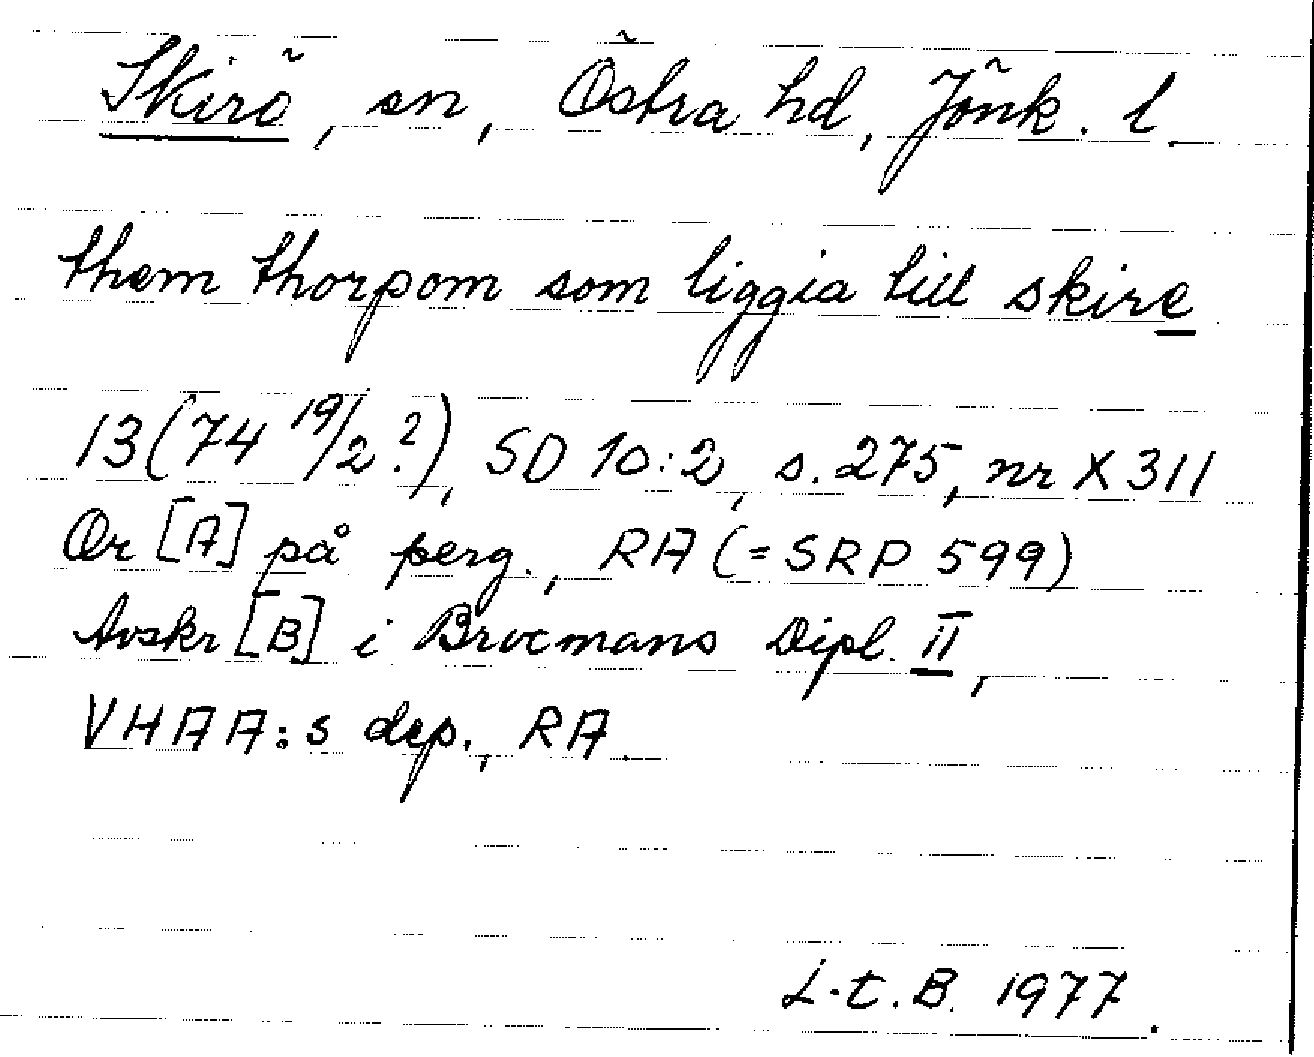 Skirö, sn, Östra hd, Jönk. l.
them thorpom som liggia till skire
13(74 19/2?), SD 10:2, s. 275, nr X 311
Or [A] på perg., RA (= SRP 599)
Avskr [B] i Brocmans Dipl. II,
VHAA:s dep., RA.
L.t.B. 1977.